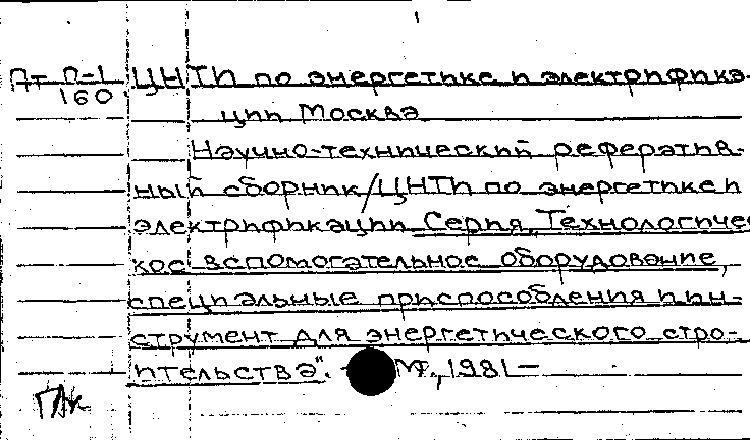 Пт П-1 ЦНТИ по энергетике и электрифика-
160
ции Москва
Научно-технический рефератив-
ный сборник/ЦНТИ по энергетике и
электрификации Серия „Технологичес
кое вспомогательное оборудование,
специальные приспособления и ин-
струмент для энергетического стро-
ительства". - М., 1981 —